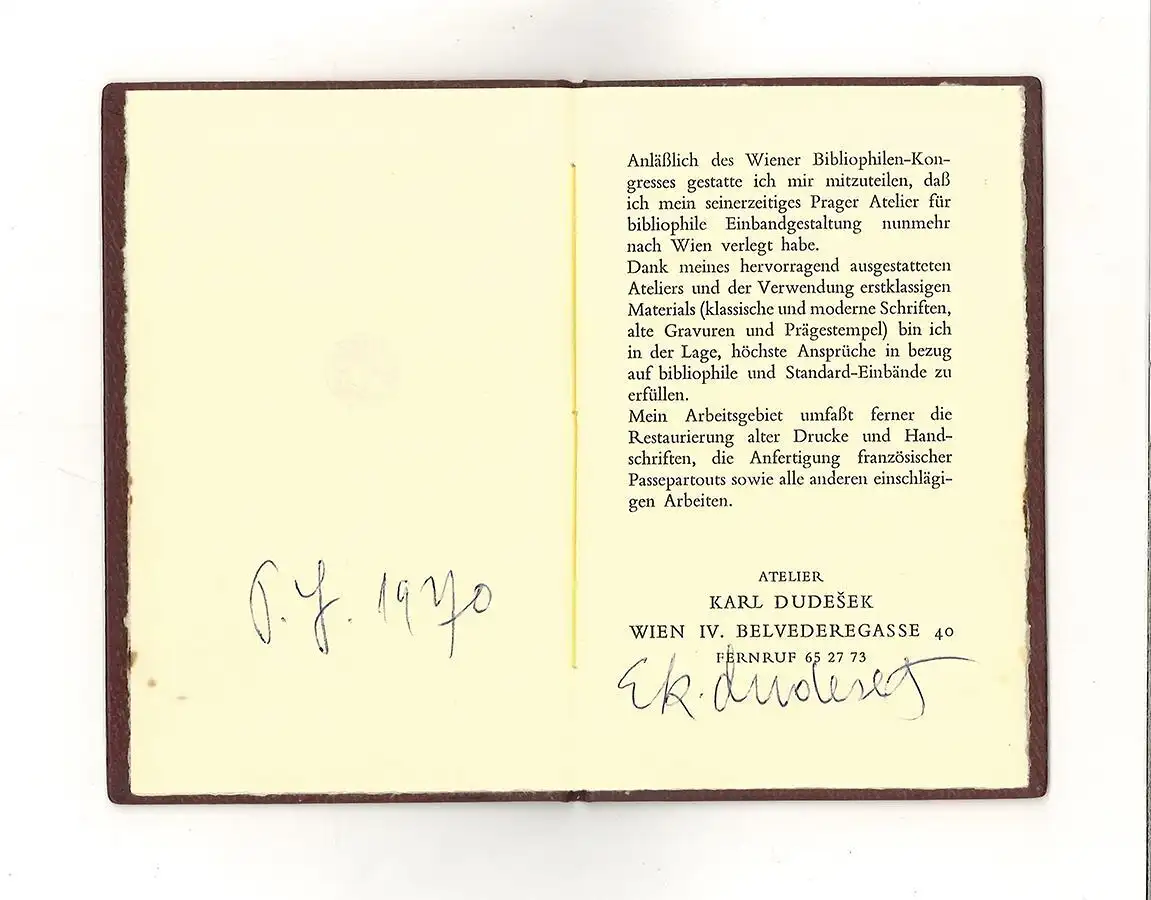 P. f. 1970
Anläßlich des Wiener Bibliophilen-Kon-
gresses gestatte ich mir mitzuteilen, daß
ich mein seinerzeitiges Prager Atelier für
bibliophile Einbandgestaltung nunmehr
nach Wien verlegt habe.
Dank meines hervorragend ausgestatteten
Ateliers und der Verwendung erstklassigen
Materials (klassische und moderne Schriften,
alte Gravuren und Prägestempel) bin ich
in der Lage, höchste Ansprüche in bezug
auf bibliophile und Standard-Einbände zu
erfüllen.
Mein Arbeitsgebiet umfaßt ferner die
Restaurierung alter Drucke und Hand-
schriften, die Anfertigung französischer
Passepartouts sowie alle anderen einschlägi-
gen Arbeiten.
ATELIER
KARL DUDEŠEK
WIEN IV. BELVEDEREGASSE 40
FERNRUF 65 27 73
EK. Dudesek